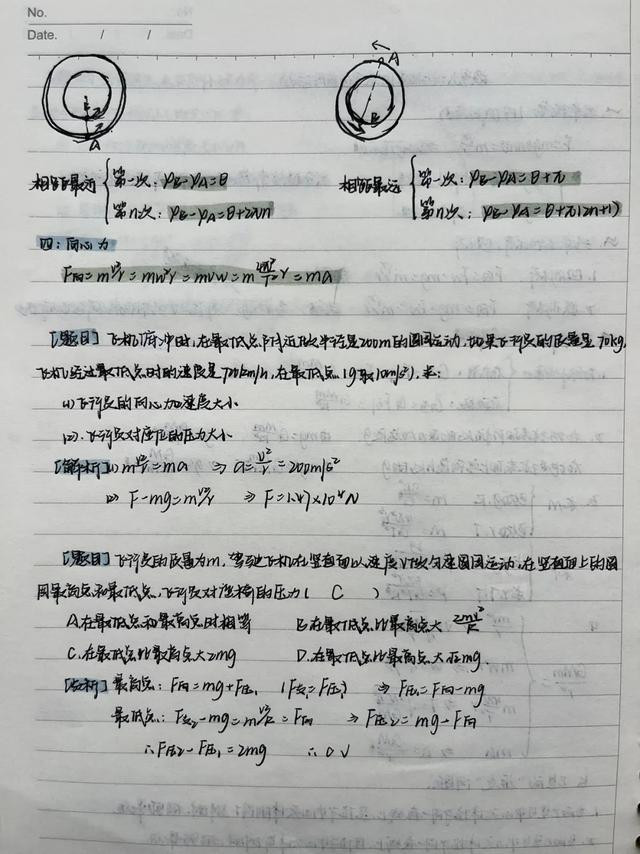 No.
Date. / /
A
B
A
相距最近 第一次: φB-φA=θ
第n次: φB-φA=θ+2πn
相距最远 第一次: φB-φA=θ+π
第n次: φB-φA=θ+π(2n+1)
四: 向心力
F向=m v²/r=mω²r=mvω=m 4π²/T² r=ma
[题目] 飞机俯冲时,在最低点附近做半径是200m的圆周运动,如果飞行员的质量是70kg,
飞机经过最低点时的速度是720km/h,在最低点 (g取10m/s²),求:
(1)飞行员的向心加速度大小
(2).飞行员对座位的压力大小
[解析](1) m v²/r=ma ⇒ a=v²/r=200m/s²
(2) F-mg=m v²/r ⇒ F=1.47×10⁴N
[题目] 飞行员的质量为m,驾驶飞机在竖直面以速度V做匀速圆周运动,在竖直面上的圆
周最高点和最低点,飞行员对座椅的压力( C )
A.在最低点和最高点时相等 B.在最低点比最高点大 2mv²/R
C.在最低点比最高点大2mg D.在最低点比最高点大√2mg.
最高点: F向=mg+F压₁ (F支=F压) ⇒ F压₁=F向-mg
最低点: F支₂-mg=m v²/R=F向 ⇒ F压₂=mg+F向
∴F压₂-F压₁=2mg